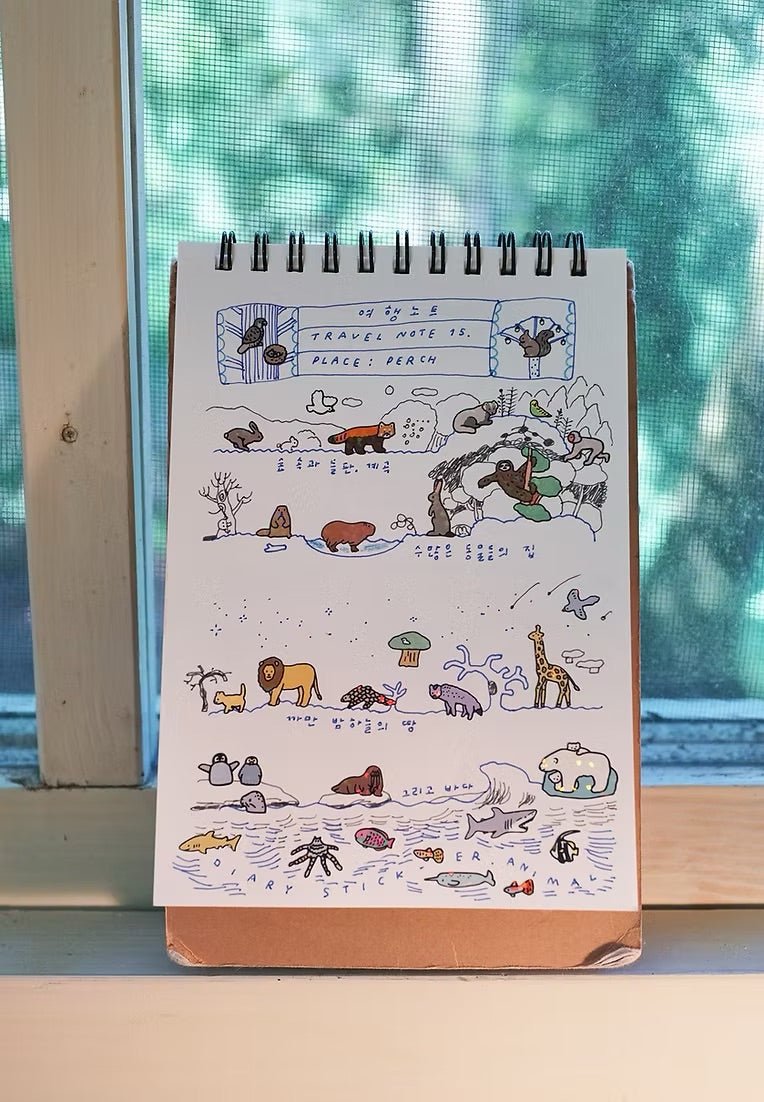 여행노트
TRAVEL NOTE 15.
PLACE : PERCH
숲속과 들판, 계곡
수많은 동물들의 집
까만 밤하늘의 땅
그리고 바다
DIARY STICKER. ANIMAL